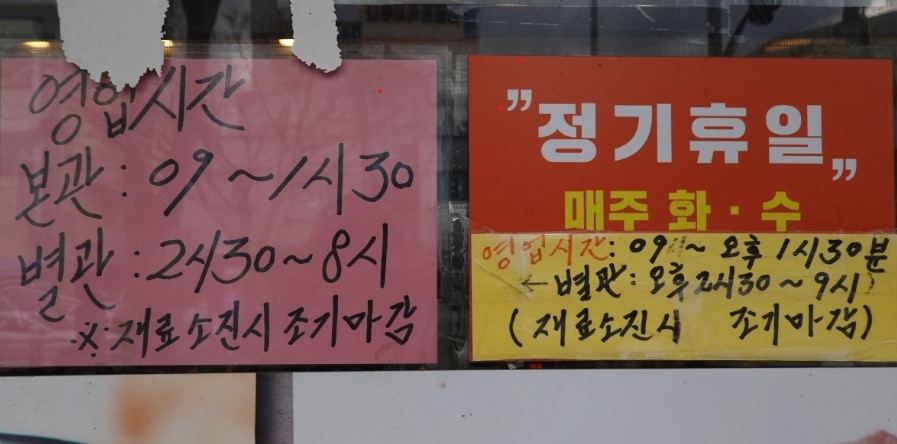 영업시간
본관 : 09 ~ 1시30
별관 : 2시30 ~ 8시
※ 재료소진시 조기마감
"정기휴일"
매주 화 · 수
영업시간 : 09 ~ 오후 1시30분
← 별관 : 오후 2시30 ~ 9시
(재료소진시 조기마감)